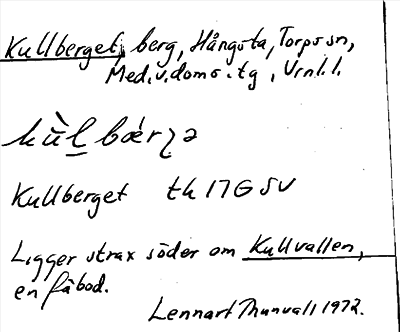 Kullberget, berg, Hångsta, Torps sn,
Med.v.doms.tg, Vrnl.l.
kùl bærʒə
Kullberget th 17G SV
Ligger strax söder om Kullvallen,
en fäbod.
Lennart Thunvall 1972.